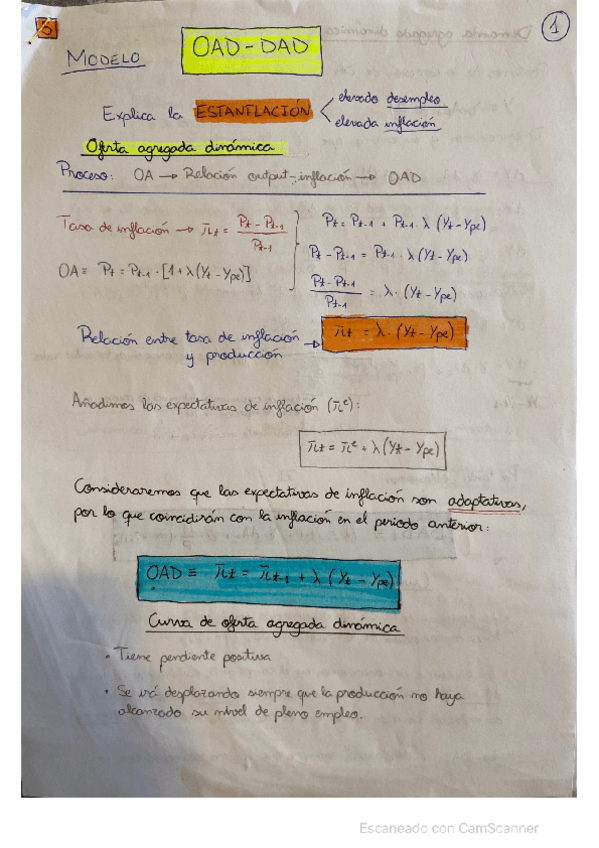 5
1
MODELO OAD-DAD
Explica la ESTANFLACIÓN
elevado desempleo
elevada inflación
Oferta agregada dinámica
Proceso: OA → Relación output-inflación → OAD
Tasa de inflación → πt = (Pt - Pt-1) / Pt-1
OA ≡ Pt = Pt-1 · [1 + λ(Yt - Ype)]
Pt = Pt-1 + Pt-1 · λ (Yt - Ype)
Pt - Pt-1 = Pt-1 · λ (Yt - Ype)
(Pt - Pt-1) / Pt-1 = λ · (Yt - Ype)
Relación entre tasa de inflación
y producción → πt = λ · (Yt - Ype)
Añadimos las expectativas de inflación (πe):
πt = πe + λ(Yt - Ype)
Consideraremos que las expectativas de inflación son adaptativas,
por lo que coincidirán con la inflación en el periodo anterior:
OAD ≡ πt = πt-1 + λ (Yt - Ype)
Curva de oferta agregada dinámica
· Tiene pendiente positiva
· Se irá desplazando siempre que la producción no haya
alcanzado su nivel de pleno empleo.
Escaneado con CamScanner